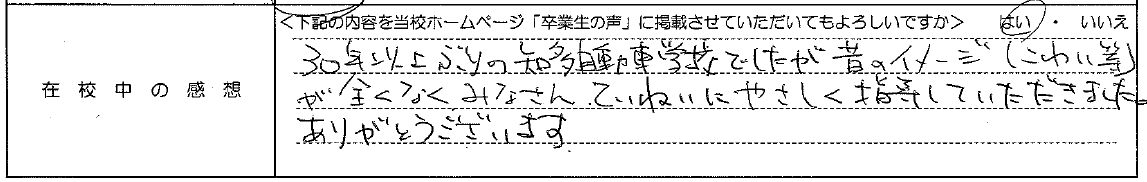 <下記の内容を当校ホームページ「卒業生の声」に掲載させていただいてもよろしいですか> はい ・ いいえ
在校中の感想
30年以上ぶりの知多自動車学校でしたが昔のイメージ(こわい等)
が全くなくみなさんていねいにやさしく指導していただきました。
ありがとうございます